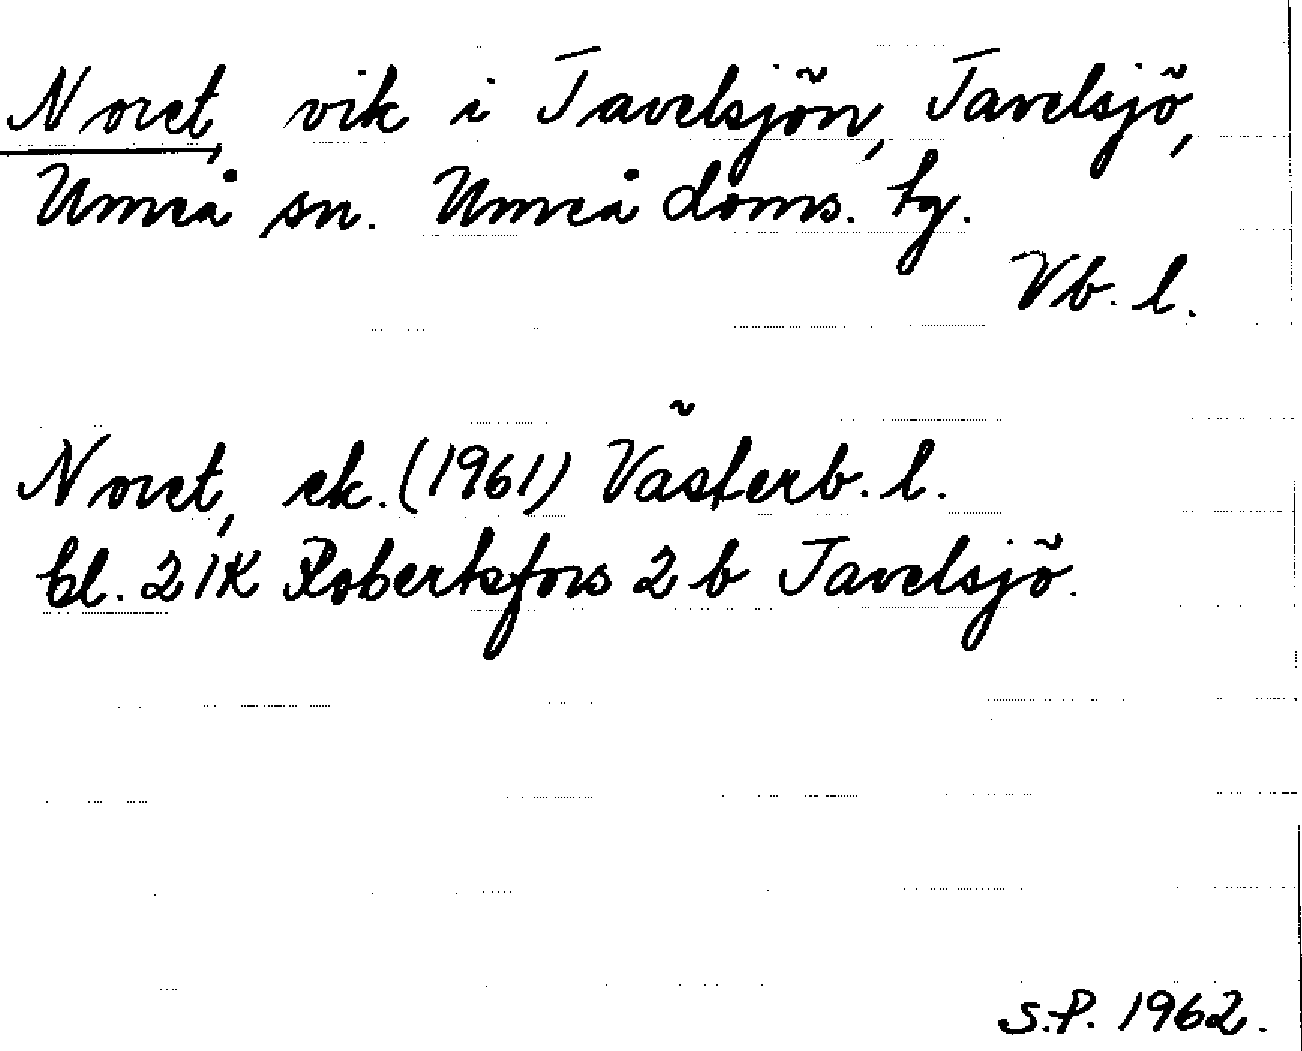 Noret, vik i Tavelsjön, Tavelsjö,
Umeå sn. Umeå doms. tg.
Vb. l.
Noret, ek. (1961) Västerb. l.
bl. 21K Robertsfors 2 b Tavelsjö.
S.P. 1962.